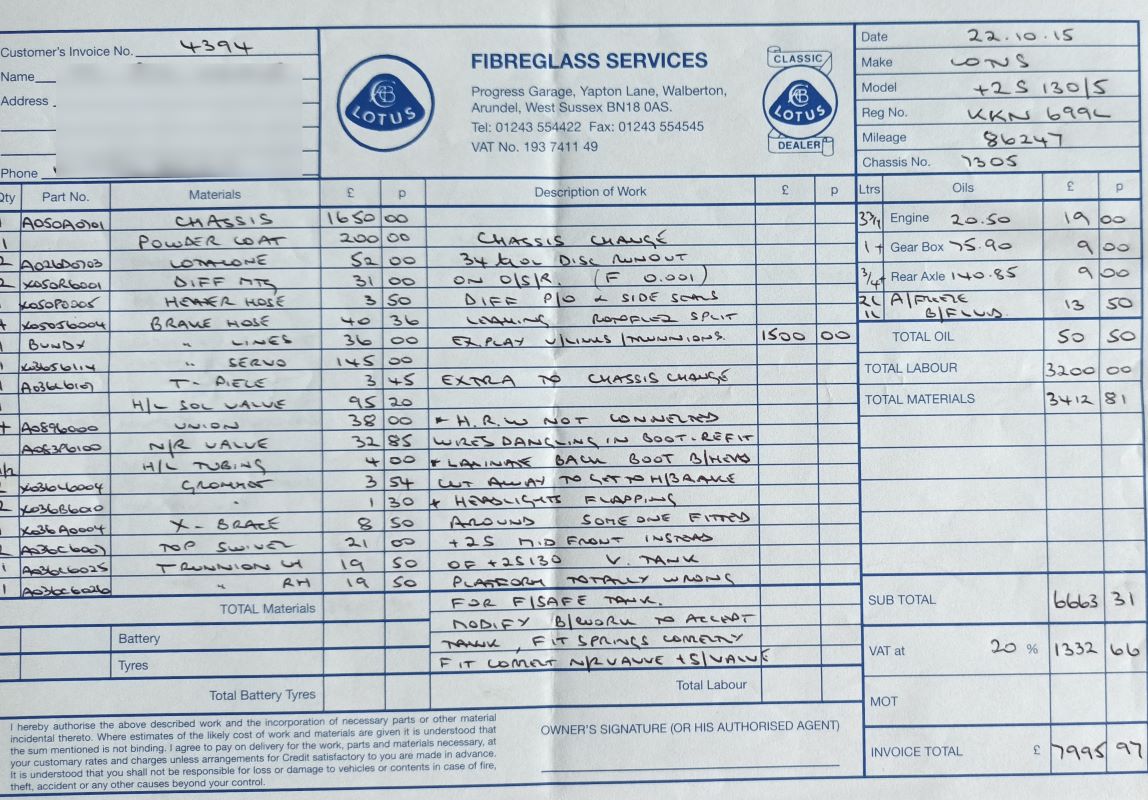 Customer's Invoice No. 4394
Name
Address
Phone
LOTUS
FIBREGLASS SERVICES
Progress Garage, Yapton Lane, Walberton,
Arundel, West Sussex BN18 0AS.
Tel: 01243 554422 Fax: 01243 554545
VAT No. 193 7411 49
CLASSIC
LOTUS
DEALER
Date 22.10.15
Make LOTUS
Model +2S 130/5
Reg No. KKN 699L
Mileage 86247
Chassis No. 7305
Qty Part No. Materials £ p Description of Work £ p Ltrs Oils £ p
A050A0701 CHASSIS 1650 00
1 POWDER COAT 200 00 CHASSIS CHANGE
2 A026D0703 LOTALONE 52 00 34 DISC RUNOUT
2 X050R6001 DIFF MTG 31 00 ON O/S/R. (F 0.001)
X050P0005 HEATER HOSE 3 50 DIFF P/O & SIDE SEALS
X050S6004 BRAKE HOSE 40 36 LEAKING ROTOFLEX SPLIT
1 BUNDY " LINES 36 00 EX.PLAY V/LINKS/TRUNNIONS. 1500 00
X036S6114 " SERVO 145 00
A036L6107 T-PIECE 3 45 EXTRA TO CHASSIS CHANGE
H/L SOL VALVE 95 20
A0896000 UNION 38 00 * H.R.W NOT CONNECTED
A083P6100 N/R VALVE 32 85 WIRES DANGLING IN BOOT-REFIT
H/L TUBING 4 00 * LAMINATE BACK BOOT B/HEAD
X036U6004 GROMMET 3 54 CUT AWAY TO GET TO H/BRAKE
2 X036B6010 " 1 30 * HEADLIGHTS FLAPPING
X036A0004 X-BRACE 8 50 AROUND SOMEONE FITTED
2 A036C6007 TOP SWIVEL 21 00 +2S MID FRONT INSTEAD
1 A036C6025 TRUNNION LH 19 50 OF +2S130 V. TANK
1 A036C6026 " RH 19 50 PLATFORM TOTALLY WRONG
TOTAL Materials
FOR F/SAFE TANK.
MODIFY B/WORK TO ACCEPT
TANK, FIT SPRINGS CORRECTLY
FIT CORRECT N/R VALVE + S/VALVE
Battery
Tyres
Total Battery Tyres
Total Labour
Engine 20.50 19 00
1 + Gear Box 75.90 9 00
3/4+ Rear Axle 140.85 9 00
2L A/FREEZE
1L B/FLUID. 13 50
TOTAL OIL 50 50
TOTAL LABOUR 3200 00
TOTAL MATERIALS 3412 81
SUB TOTAL 6663 31
VAT at 20 % 1332 66
MOT
INVOICE TOTAL £ 7995 97
I hereby authorise the above described work and the incorporation of necessary parts or other material
incidental thereto. Where estimates of the likely cost of work and materials are given it is understood that
the sum mentioned is not binding. I agree to pay on delivery for the work, parts and materials necessary, at
your customary rates and charges unless arrangements for Credit satisfactory to you are made in advance.
It is understood that you shall not be responsible for loss or damage to vehicles or contents in case of fire,
theft, accident or any other causes beyond your control.
OWNER'S SIGNATURE (OR HIS AUTHORISED AGENT)